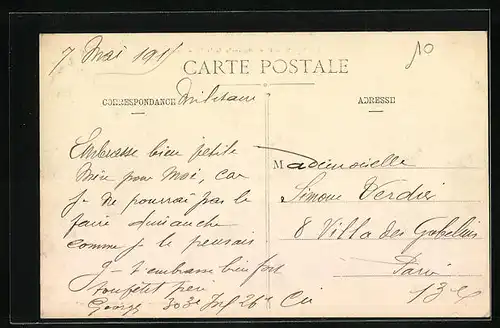 7 Mai 191
10
CARTE POSTALE
CORRESPONDANCE Militaire
ADRESSE
Embrasse bien petite
Mère pour Moi, car
je ne pourrai pas le
faire dimanche
comme je le pensais
Je t'embrasse bien fort
ton petit père
Georges 303e Inf 26e Cie
Mademoiselle
Simone Verdier
8 Villa des Gobelins
Paris
13e